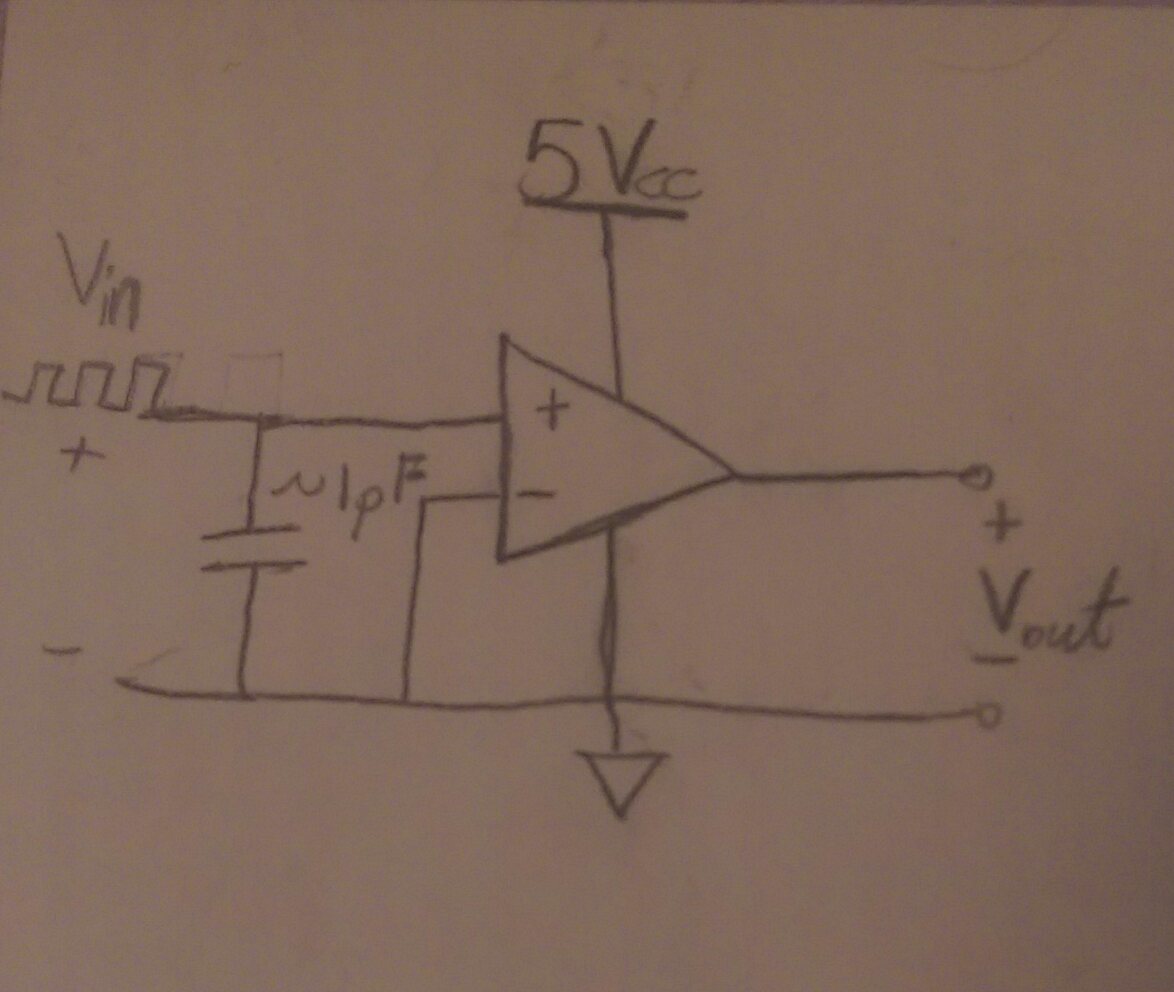 5Vcc
Vin
+
+
~1pF
-
+
-
Vout
-